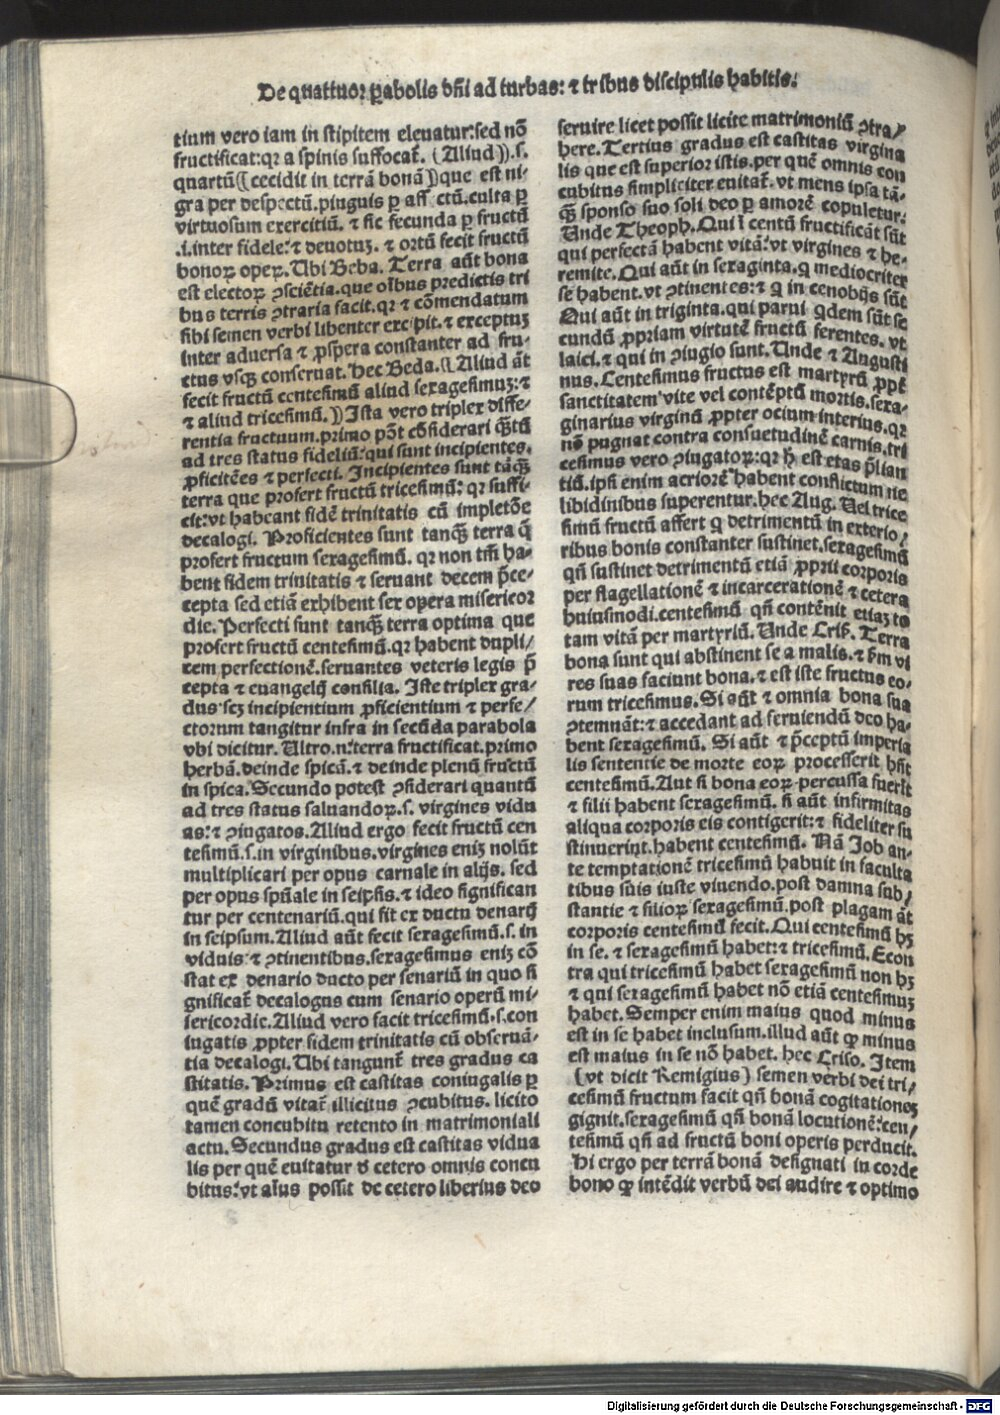 De quattuor ꝑabolis dñi ad turbas: ⁊ tribus discipulis habitis.
tium vero iam in stipitem eleuatur:sed nō
fructificat:qꝛ a spinis suffocat̄. (Aliud)).s.
quartū((cecidit in terrā bonā))que est ni-
gra per despectū.pinguis ꝑ affectū.culta ꝑ
virtuosum exercitiū. ⁊ sic fecunda ꝑ fructū
.i.inter fidele:⁊ deuotuꝫ. ⁊ ortū fecit fructū
bonoꝝ opeꝝ. Ubi Beda. Terra aūt bona
est electoꝝ ↄsciētia.que oībus predictis tri
bus terris ↄtraria facit.qꝛ ⁊ cōmendatum
sibi semen verbi libenter excipit.⁊ exceptuꝫ
inter aduersa ⁊ ꝓspera constanter ad fru-
ctus vsqꝫ conseruat. hec Beda.((Aliud āt
fecit fructū centesimū aliud sexagesimuꝫ:⁊
⁊ aliud tricesimū.))Ista vero triplex diffe-
rentia fructuum.primo pōt cōsiderari quātū
ad tres status fideliū:qui sunt incipientes.
ꝓficiētes ⁊ perfecti. Incipientes sunt tāqꝫ
terra que profert fructū tricesimū: qꝛ suffi-
cit:vt habeant fidē trinitatis cū impletōe
decalogi. Proficientes sunt tanqꝫ terra q̄
profert fructum sexagesimū. qꝛ non tm̄ ha-
bent fidem trinitatis ⁊ seruant decem p̄ce-
cepta sed etiā exhibent sex opera misericor
die. Perfecti sunt tanqꝫ terra optima que
profert fructū centesimū.qꝛ habent dupli/
cem perfectionē.seruantes veteris legis p̄
cepta ⁊ euangelij consilia. Iste triplex gra-
dus scꝫ incipientium ꝓficientium ⁊ perfe-
ctorum tangitur infra in secūda parabola
vbi dicitur. Ultro.n.terra fructificat.primo
herbā.deinde spicā.⁊ deinde plenū fructū
in spica. Secundo potest ↄsiderari quantū
ad tres status saluandoꝝ.s. virgines vidu
as:⁊ ↄiugatos. Aliud ergo fecit fructū cen
tesimū.s.in virginibus.virgines eniꝫ nolūt
multiplicari per opus carnale in alijs. sed
per opus spūale in seipsis.⁊ ideo significan
tur per centenariū.qui fit ex ductu denarij
in seipsum. Aliud aūt fecit sexagesimū.s. in
viduis:⁊ ↄtinentibus.sexagesimus eniꝫ cō
stat ex denario ducto per senariū in quo si
gnificat̄ decalogus cum senario operū mi/
sericordie. Aliud vero facit tricesimū.s.con
iugatis ꝓpter fidem trinitatis cū obseruā-
tia decalogi. Ubi tangunt̄ tres gradus ca
stitatis. Primus est castitas coniugalis ꝑ
quē gradū vitat̄ illicitus ↄcubitus. licito
tamen concubitu retento in matrimoniali
actu. Secundus gradus est castitas vidua
lis per quē euitatur d̄ cetero omnis concu
bitus:vt alius possit de cetero liberius deo
seruire licet possit licite matrimoniū ↄtra/
here. Tertius gradus est castitas virgina
lis que est superior istis.per quē omnis con
cubitus simpliciter euitat̄. vt mens ipsa tā-
qꝫ sponso suo soli deo ꝑ amorē copuletur.
Unde Theoph. Qui ī centū fructificāt sūt
qui perfectā habent vitā:vt virgines ⁊ he-
remite. Qui aūt in sexaginta. q mediocriter
se habent.vt ↄtinentes:⁊ q in cenobijs sūt
Qui aūt in triginta.qui parui qdem sūt se
cundū ꝓpriam virtutē fructū ferentes. vt
laici.⁊ qui in ↄiugio sunt. Unde ⁊ Augusti
nus. Centesimus fructus est martyrū ꝓpt̄
sanctitatem vite vel contēptū mortis.sexa-
ginarius virginū ꝓpter ocium interius.qꝛ
nō pugnat contra consuetudinē carnis.tri
cesimus vero ↄiugatoꝝ:qꝛ h̄ est etas p̄lian
tiū.ipsi enim acriorē habent conflictum ne
libidinibus superentur. hec Aug. Uel trice
simū fructū affert q detrimentū in exterio/
ribus bonis constanter sustinet.sexagesimū
qn̄ sustinet detrimentū etiā ꝓprij corporis
per flagellationē ⁊ incarcerationē ⁊ cetera
huiusmodi.centesimū qn̄ contēnit etiaꝫ to
tam vitā per martyriū. Unde Cris. Terra
bona sunt qui abstinent se a malis.⁊ s̄m vi
res suas faciunt bona.⁊ est iste fructus eo-
rum tricesimus. Si aūt ⁊ omnia bona sua
ↄtemnāt:⁊ accedant ad seruiendū deo ha-
bent sexagesimū. Si aūt ⁊ p̄ceptū imperia
lis sententie de morte eoꝝ processerit hn̄t
centesimū. Aut si bona eoꝝ percussa fuerīt
⁊ filij habent sexagesimū. si aūt infirmitas
aliqua corporis eis contigerit:⁊ fideliter su
stinuerint.habent centesimū. Nā Job an-
te temptationē tricesimū habuit in faculta
tibus suis iuste viuendo.post damna sub/
stantie ⁊ filioꝝ sexagesimū.post plagam āt
corporis centesimū fecit. Qui centesimū hꝫ
in se. ⁊ sexagesimū habet:⁊ tricesimū. Econ
tra qui tricesimū habet sexagesimū non hꝫ
⁊ qui sexagesimū habet nō etiā centesimuꝫ
habet. Semper enim maius quod minus
est in se habet inclusum.illud aūt qꝫ minus
est maius in se nō habet. hec Criso. Item
(vt dicit Remigius) semen verbi dei tri/
cesimū fructum facit qn̄ bonā cogitationeꝫ
gignit.sexagesimū qn̄ bonā locutionē:cen/
tesimū qn̄ ad fructū boni operis perducit.
Hi ergo per terrā bonā designati in corde
bono qꝫ intēdit verbū dei audire ⁊ optimo
Digitalisierung gefördert durch die Deutsche Forschungsgemeinschaft - DFG